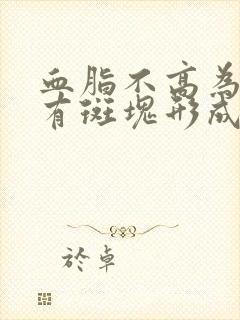 血脂不高為
有斑塊形成
於卓